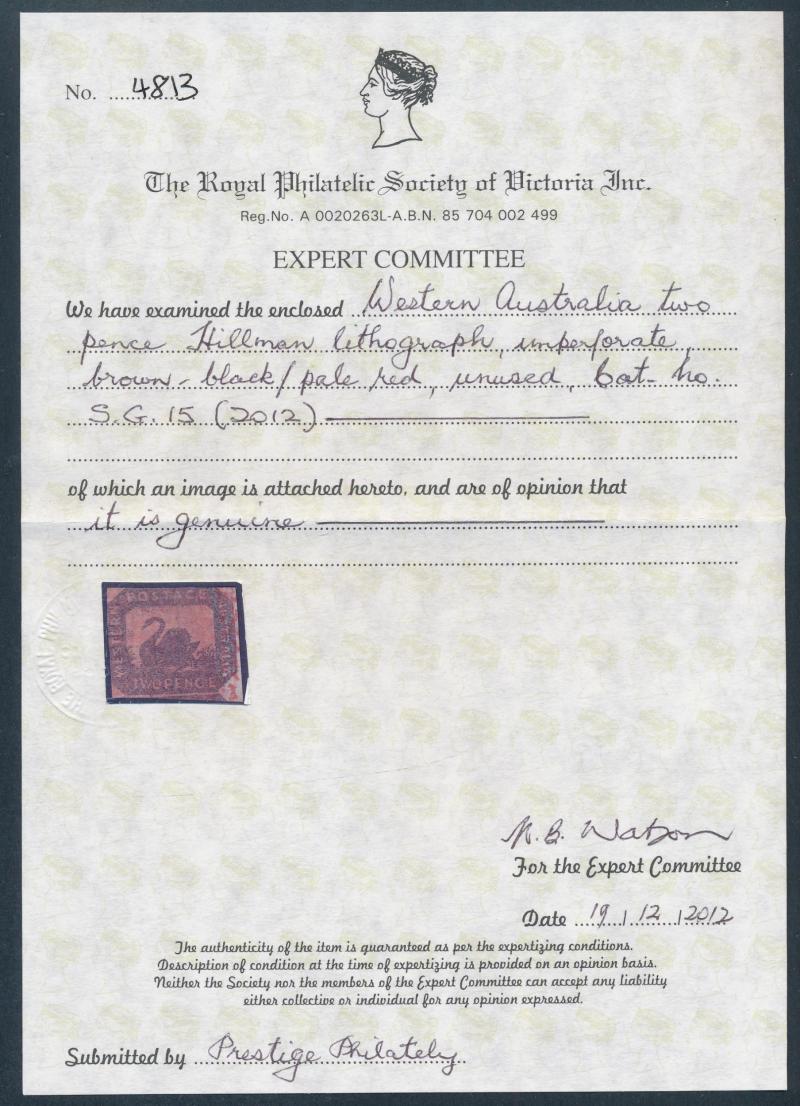 No. 4813
The Royal Philatelic Society of Victoria Inc.
Reg.No. A 0020263L-A.B.N. 85 704 002 499
EXPERT COMMITTEE
We have examined the enclosed Western Australia two
pence Hillman lithograph, imperforate,
brown-black/pale red, unused, Cat. no.
S.G. 15 (2012)
of which an image is attached hereto, and are of opinion that
it is genuine
POSTAGE
WESTERN
TWO PENCE
N. B. Watson
For the Expert Committee
Date 19 / 12 / 2012
The authenticity of the item is guaranteed as per the expertizing conditions.
Description of condition at the time of expertizing is provided on an opinion basis.
Neither the Society nor the members of the Expert Committee can accept any liability
either collective or individual for any opinion expressed.
Submitted by Prestige Philately